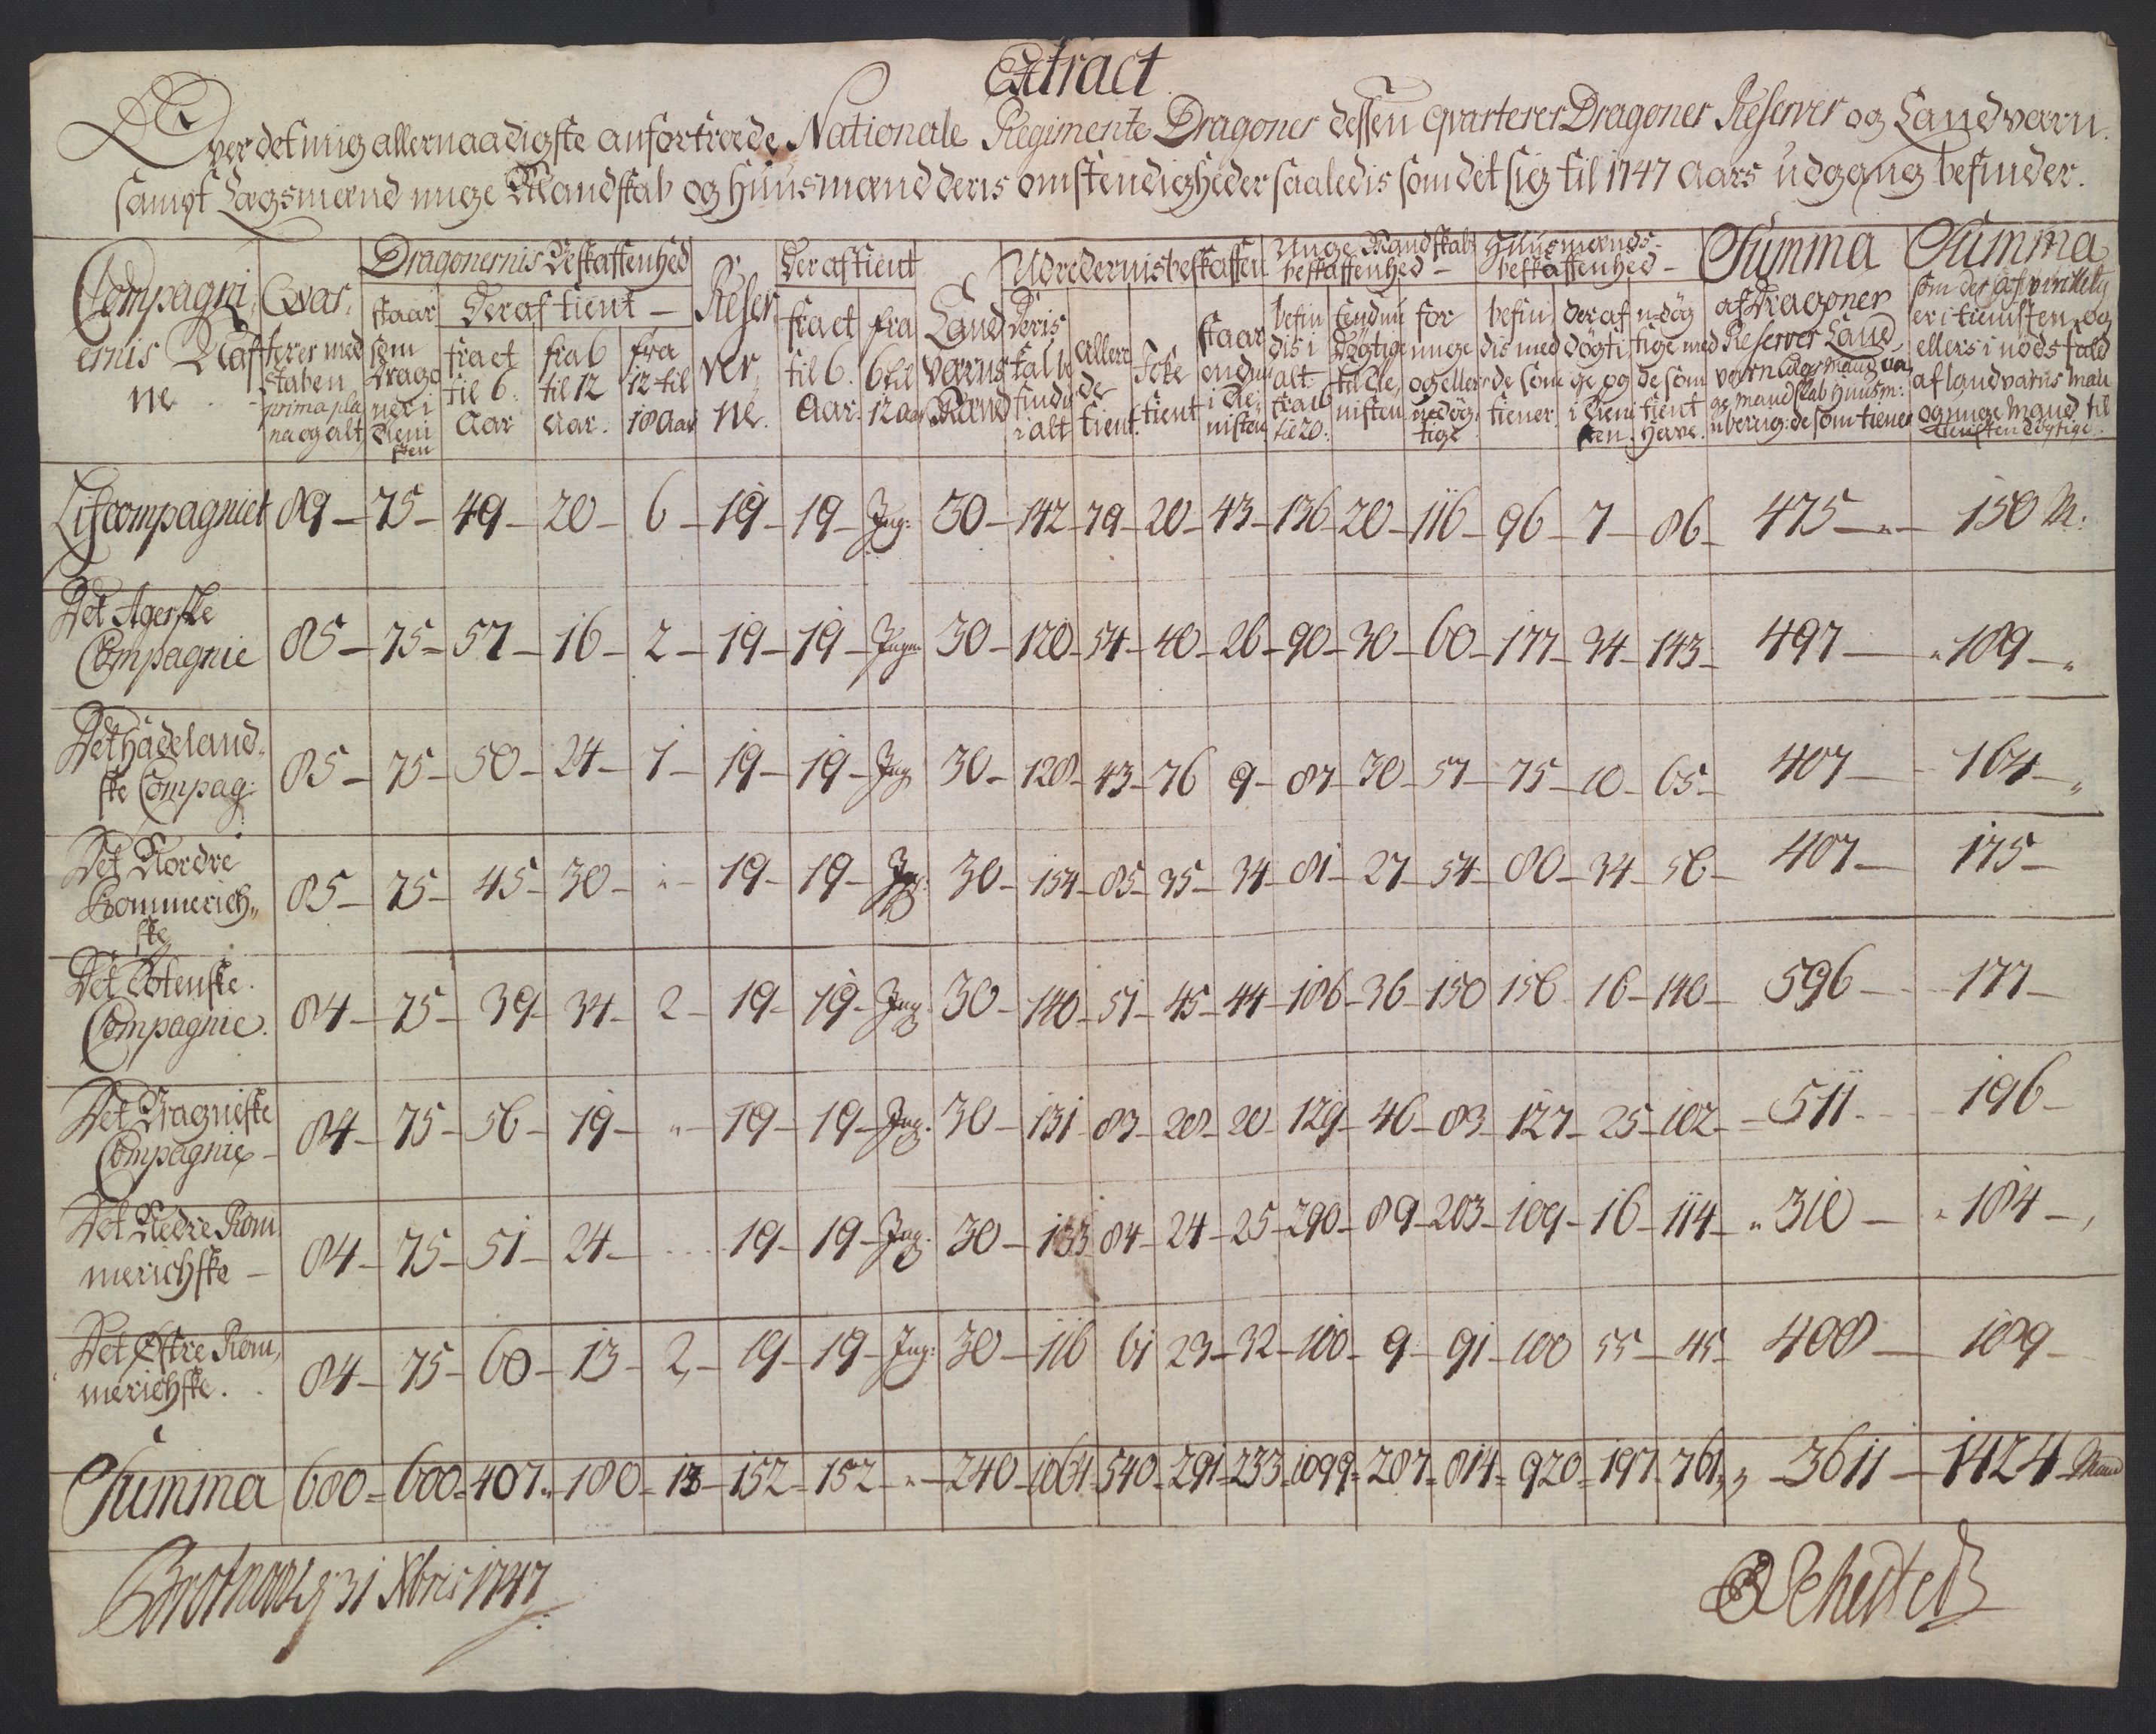 Extract
Over det mig allernaadigste anfortroede Nationale Regimente Dragoner dessen qvarterer Dragoner Reserver og Landvarn.
sampt Lagsmænd unge Mandskab og Huusmænd deris omstendigheder saaledis som det sig til 1747 Aars udgang befinder.
Compagniernis Nafne
Qvarterer med staben prima plana og alt
Dragonernis Beskaffenhed
staar som Dragoner i Tienisten
Deraf tient
fra et til 6. Aar
fra 6 til 12 Aar.
fra 12 til 18 Aar
Reserverne.
Deraf tient
fra et til 6. Aar.
fra 6 til 12 Aar
Land varns Mænd
Udredernis beskaffen
Deris tal befindis i alt
allerede tient.
Icke tient
staar endnu i Tienisten
Unge Mandskabs beskaffenhed
befindis i alt: fra 16 til 20:
endnu Døgtige til Tienisten
for unge og eller udøgtige
Huusmænds beskaffenhed
befindis med de som tiener.
deraf døgtige og i Tienisten.
udøgtige med de som tient herre.
Summa
af Dragoner Reserver Land varn Lags Mænd unge Mandskab Huusm: uberegn: de som tiener
Summa
som deraf virkelig er i tienisten og ellers i nøds fald af landvarns Man og unge Mand til tienisten døgtige.
Lifcompagniet 89 - 75 - 49 - 20 - 6 - 19 - 19 - Ing: 30 - 142 - 79 - 20 - 43 - 136 - 20 - 116 - 96 - 7 - 86 - 475 - 150 M:
Det Agerske
Compagnie 85 - 75 - 57 - 16 - 2 - 19 - 19 - Ingen 30 - 120 - 54 - 40 - 26 - 90 - 30 - 60 - 177 - 34 - 143 - 497 - 189 -
Det Hadeland-
ske Compag: 85 - 75 - 50 - 24 - 1 - 19 - 19 - Ing 30 - 128 - 43 - 76 9 - 87 - 30 - 57 - 75 - 10 - 65 - 407 - 164 -
Det Nordre
Rommerich-
ske 85 - 75 - 45 - 30 - 19 - 19 - Ing. 30 - 154 - 85 - 35 - 34 - 81 - 27 - 54 - 80 - 34 - 56 - 407 - 175 -
Det Totenske.
Compagnie. 84 - 75 - 39 - 34 - 2 - 19 - 19 - Ing. 30 - 140 - 51 - 45 - 44 - 186 - 36 - 150 156 - 16 - 140 - 596 - 177 -
Det Dragnieske
Compagnie - 84 - 75 - 56 - 19 - 19 - 19 - Ing. 30 - 131 - 83 - 28 - 20 - 129 - 46 - 83 - 127 - 25 - 102 - 511 - 196 -
Det Nedre Rom
merichske - 84 - 75 - 51 - 24 - 19 - 19 - Ing. 30 - 133 84 - 24 - 25 - 290 - 89 - 203 - 109 - 16 - 114 - 310 - 184 -
Det Østre Rom,
merichske. 84 - 75 - 60 - 13 - 2 - 19 - 19 - Ing: 30 - 116 61 - 23 - 32 - 100 - 9 - 91 - 100 55 - 45 - 408 - 189 -
Summa 680 - 600 - 407 - 180 - 13 - 152 - 152 - 240 - 1064 - 540 - 291 - 233 - 1099 - 287 - 814 - 920 - 197 - 761 - 3611 - 1424 Mand
31 Xbris 1747